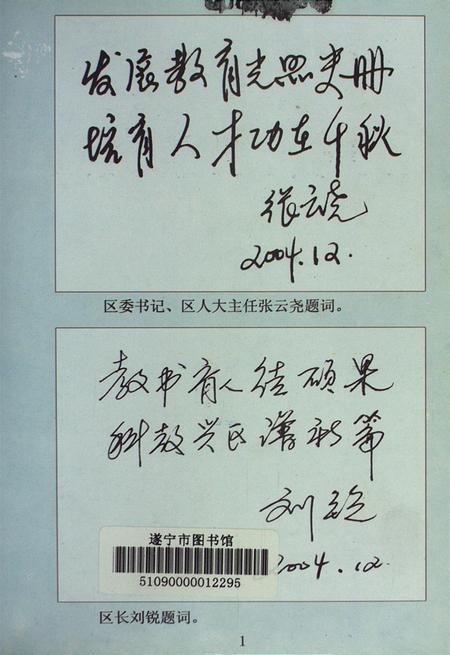 发展教育光照史册
培育人才功在千秋
张云尧
2004.12.
区委书记、区人大主任张云尧题词。
教书育人结硕果
科教兴区谱新篇
刘锐
2004.12.
遂宁市图书馆
51090000012295
区长刘锐题词。
1